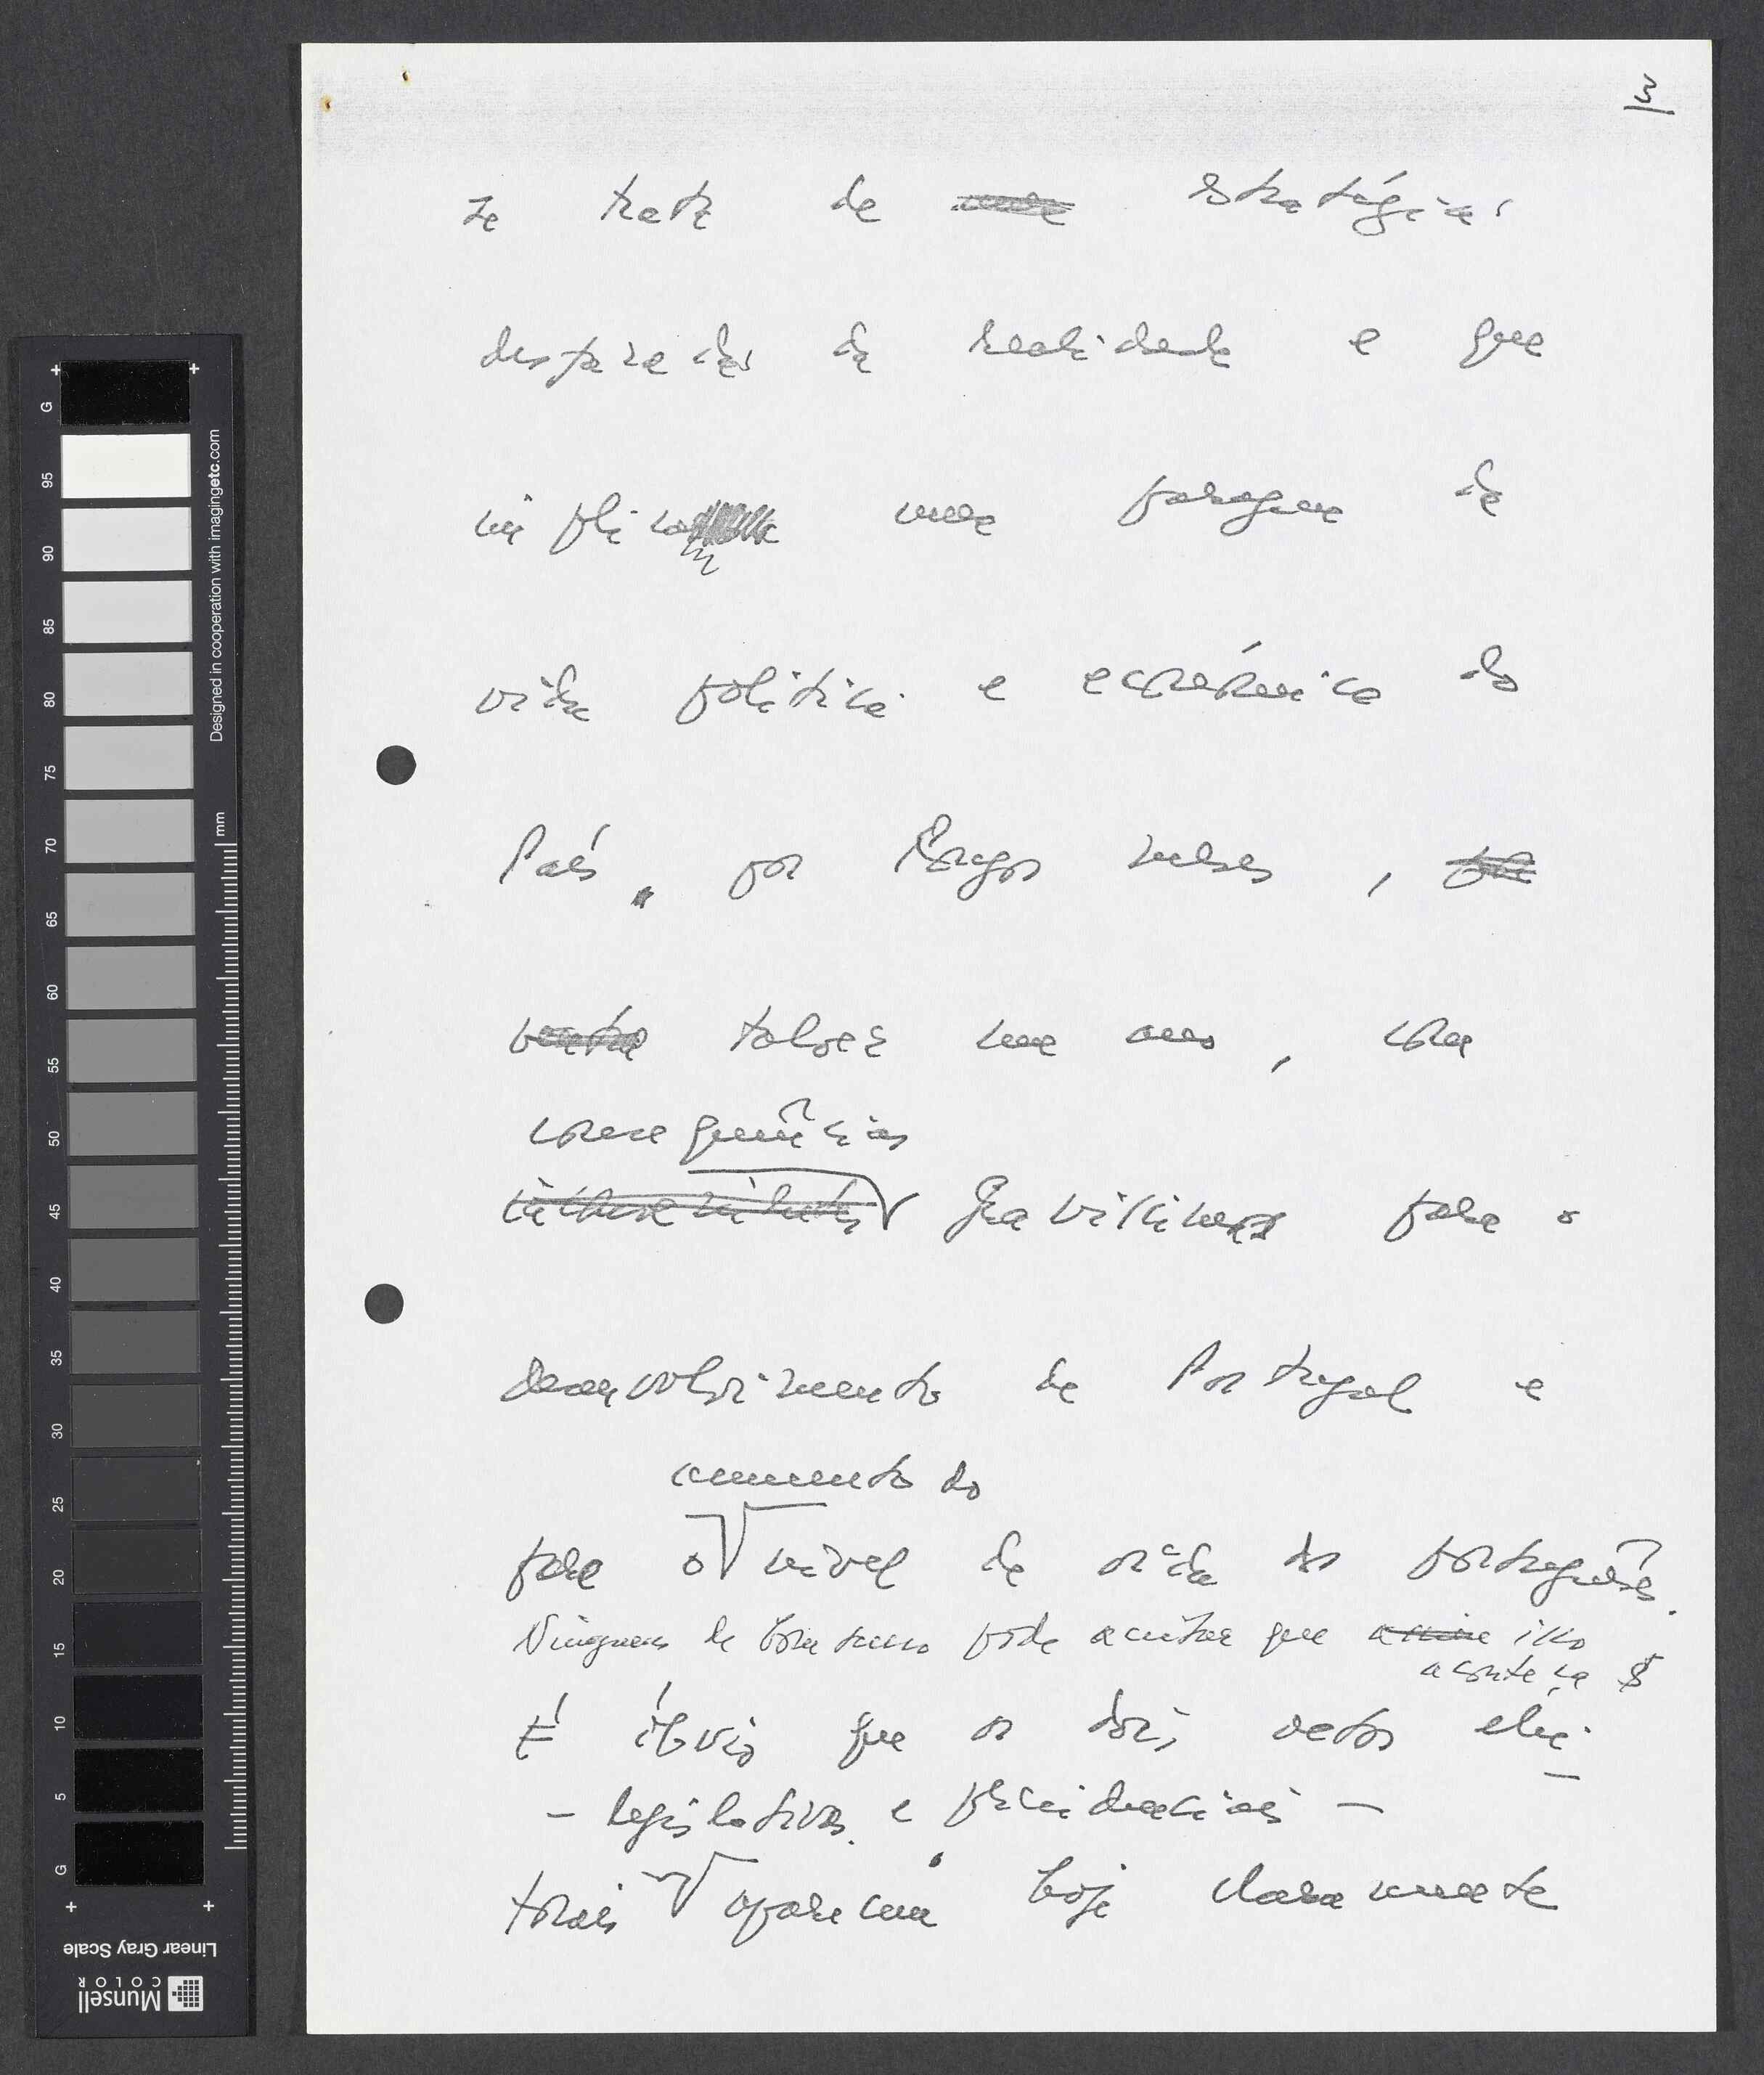 3
se trata de ~~uma~~ estratégias
desfazadas da realidade e que
implicam uma paragem da
vida política e económica do
País, por longos meses, ~~por~~
talvez um ano, com
consequências
gravíssimas para o
desenvolvimento de Portugal e
aumento do
para o nível de vida dos portugueses.
Ninguem de bom senso pode aceitar que isso
aconteça
É óbvio que os dois actos elei-
- legislativas e presidenciais -
torais aparecem hoje claramente
G
95
90
85
80
75
70
65
60
55
50
45
40
35
30
25
20
15
10
5
G
mm
Designed in cooperation with imagingetc.com
Linear Gray Scale
Munsell
COLOR